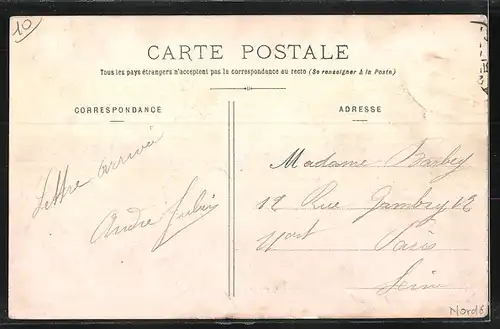 10
CARTE POSTALE
Tous les pays étrangers n'acceptent pas la correspondance au recto (Se renseigner à la Poste)
CORRESPONDANCE
ADRESSE
Lettre arrivée
André
Madame Barbey
12 Rue Gambey 12
Paris
Seine
Nord